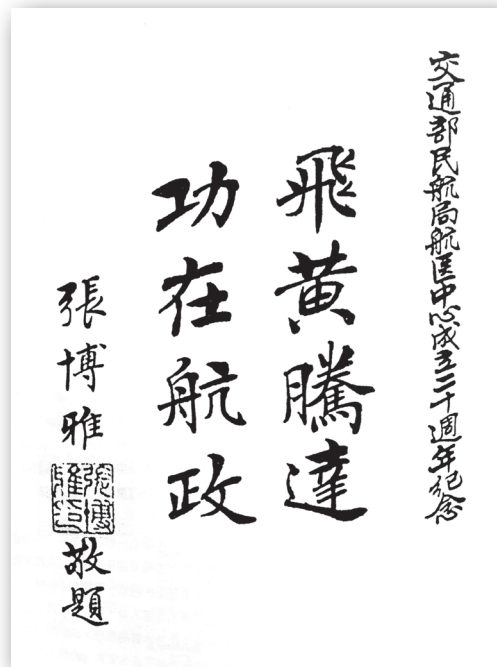 交通部民航局航医中心成立二十週年紀念
飛黃騰達
功在航政
張博雅
張博
雅印
敬題